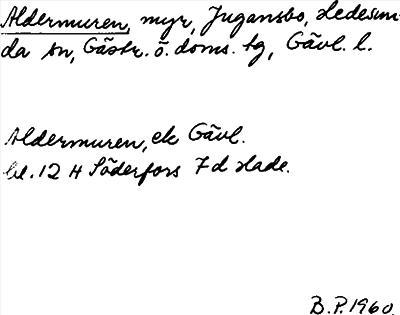 Aldermuren, myr, Jugansbo, Hedesun-
da sn, Gästr. ö. doms. tg, Gävl. l.
Aldermuren, ek Gävl.
bl. 12 H Söderfors 7 d Hade.
B.P. 1960.